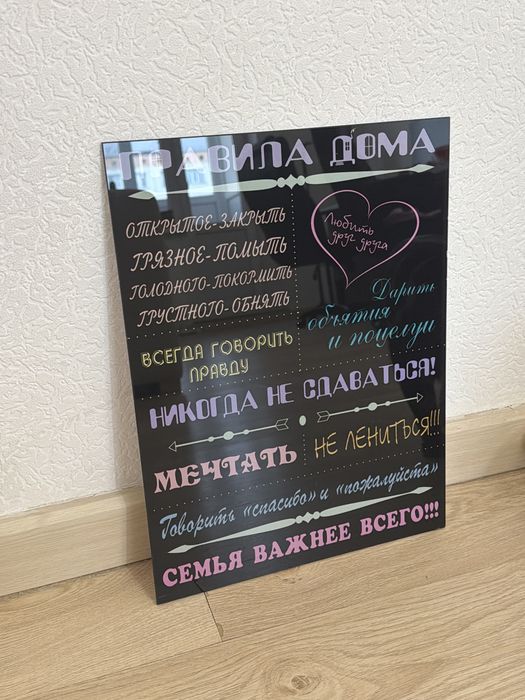 ПРАВИЛА ДОМА
ОТКРЫТОЕ-ЗАКРЫТЬ
ГРЯЗНОЕ-ПОМЫТЬ
ГОЛОДНОГО-ПОКОРМИТЬ
ГРУСТНОГО-ОБНЯТЬ
Любить
друг друга
Дарить
объятия
и поцелуи
ВСЕГДА ГОВОРИТЬ
ПРАВДУ
НИКОГДА НЕ СДАВАТЬСЯ!
МЕЧТАТЬ
НЕ ЛЕНИТЬСЯ!!!
Говорить "спасибо" и "пожалуйста"
СЕМЬЯ ВАЖНЕЕ ВСЕГО!!!